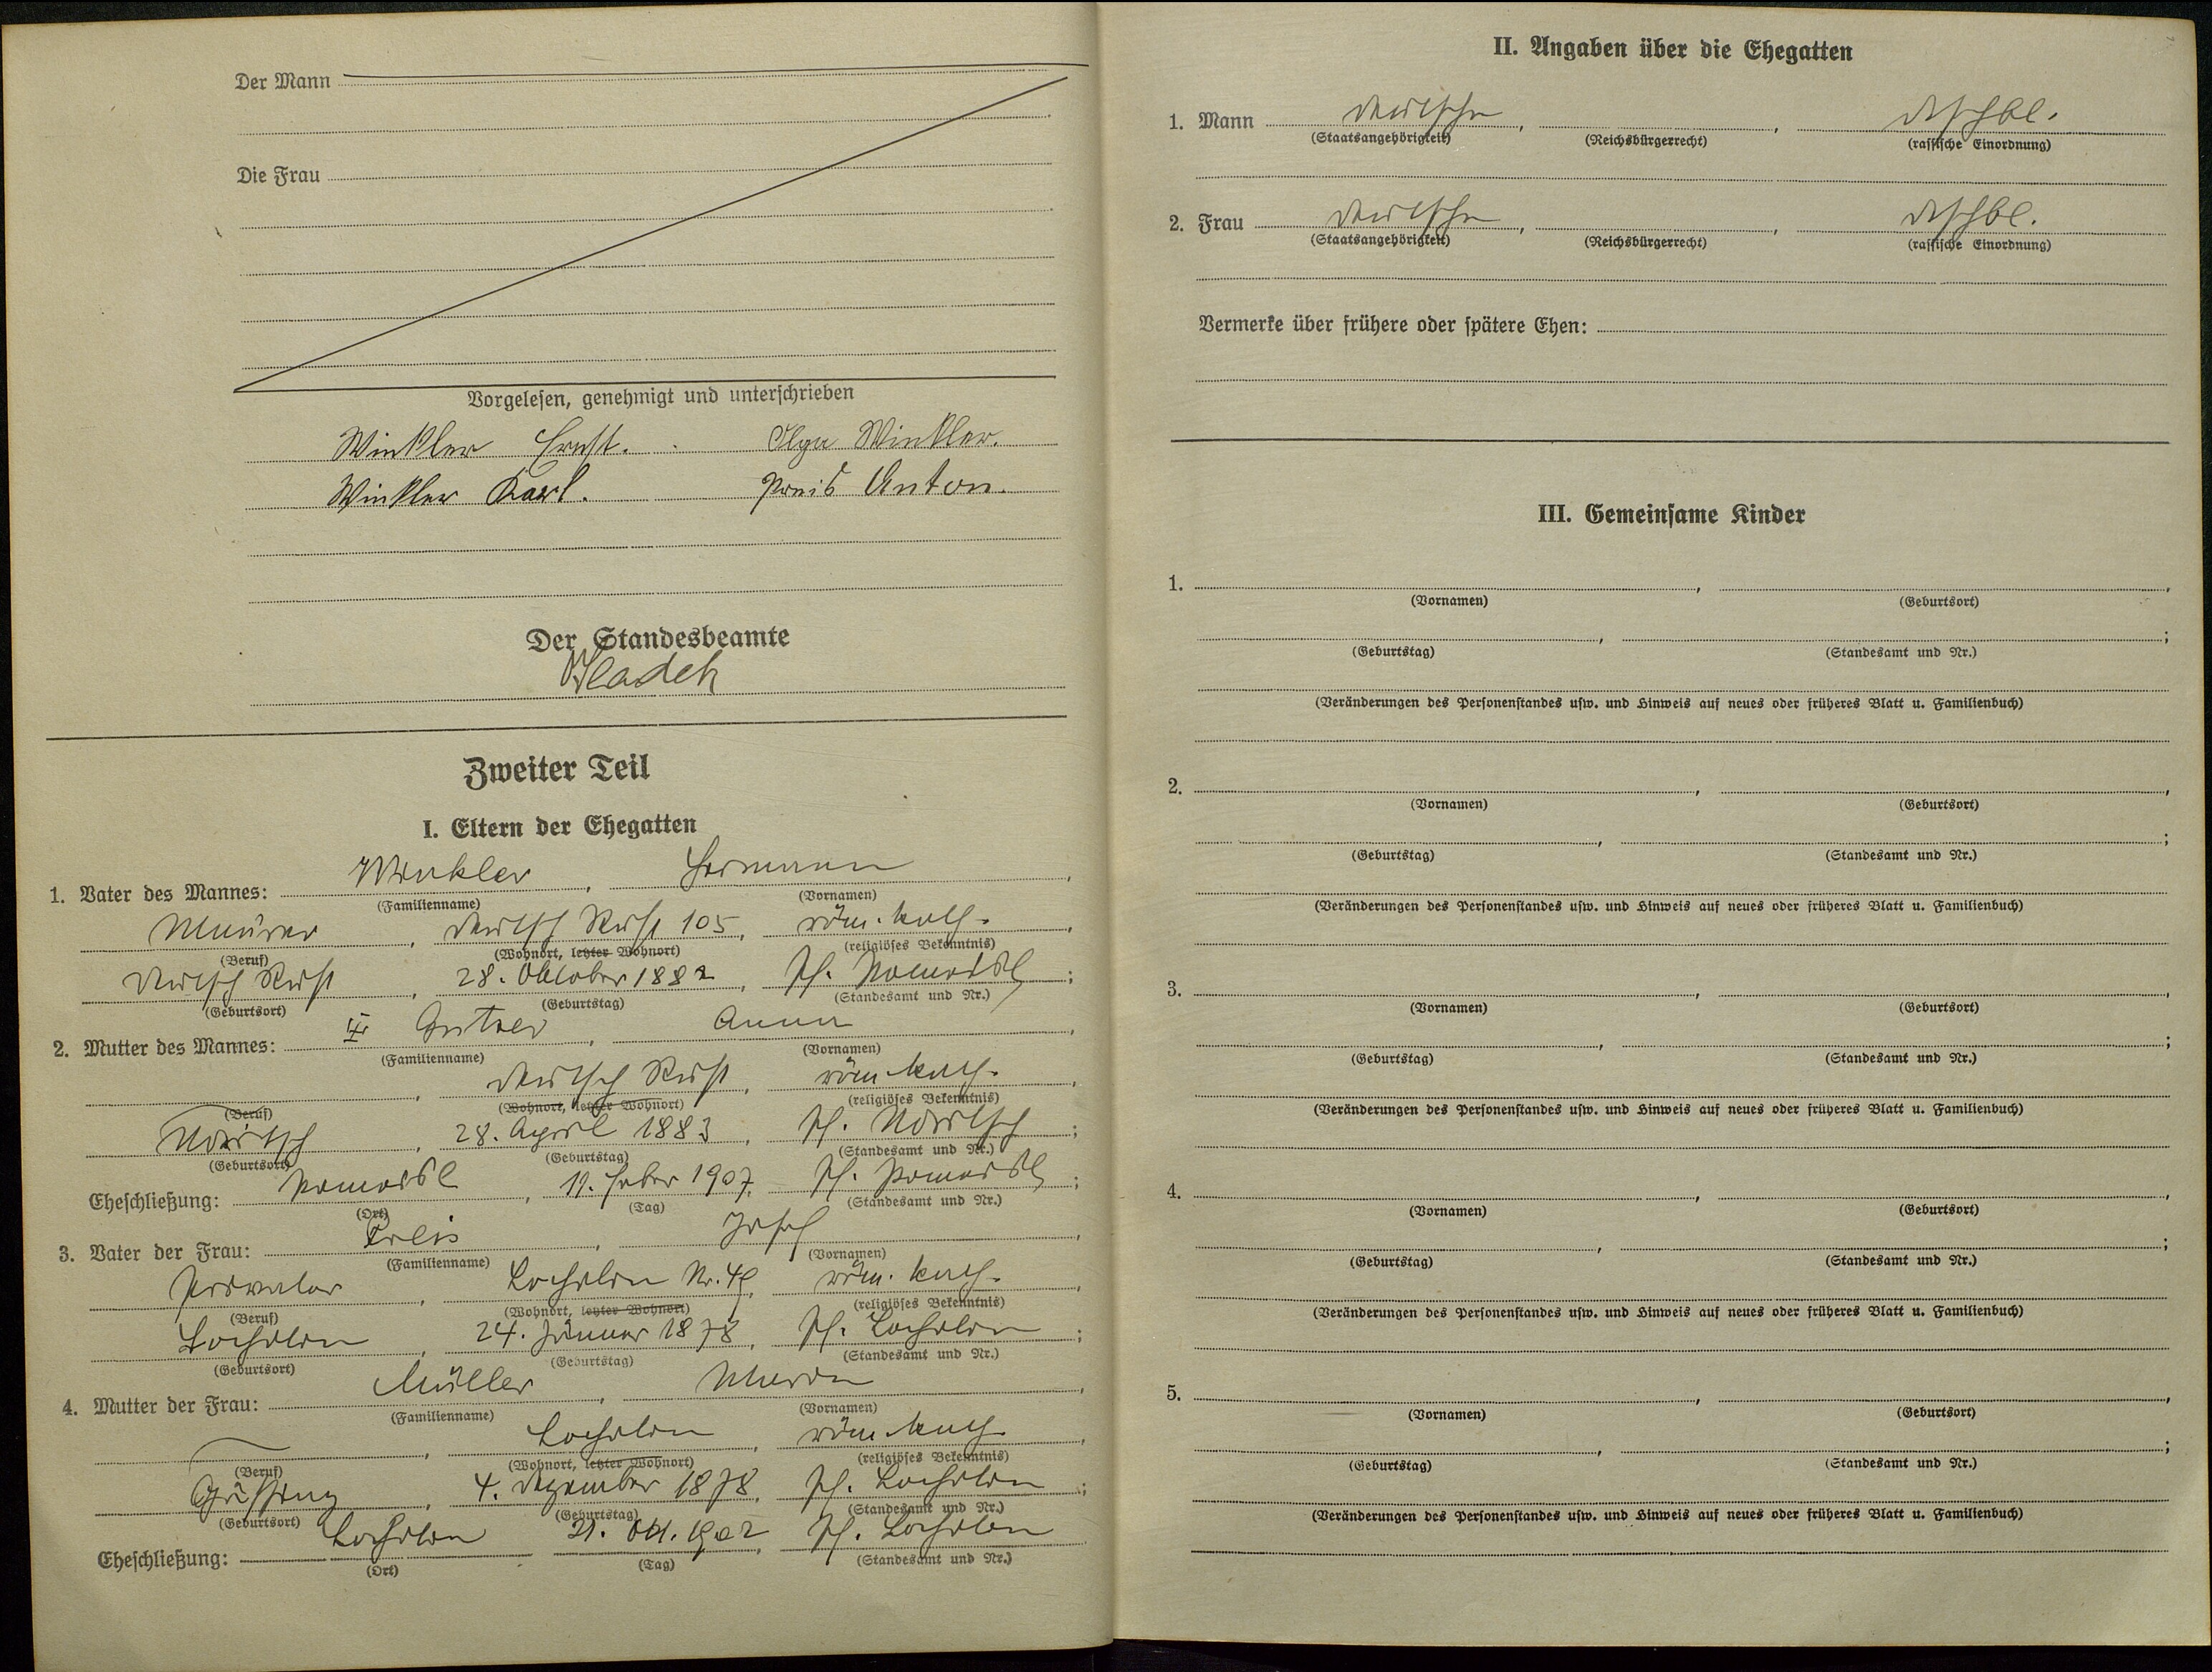 Der Mann
Die Frau
Vorgelesen, genehmigt und unterschrieben
Winkler Ernst. Olga Winkler.
Winkler Karl. Preis Anton.
Der Standesbeamte
Hladek
Zweiter Teil
I. Eltern der Ehegatten
1. Vater des Mannes: Winkler, Hermann,
(Familienname) (Vornamen)
Maurer, Deutsch Rust 105, röm. kath.,
(Beruf) (Wohnort, letzter Wohnort) (religiöses Bekenntnis)
Deutsch Rust, 28. Oktober 1882, Pf. Pomeisl;
(Geburtsort) (Geburtstag) (Standesamt und Nr.)
2. Mutter des Mannes: Anna,
(Familienname) (Vornamen)
Deutsch Rust, röm. kath.,
(Beruf) (Wohnort, letzter Wohnort) (religiöses Bekenntnis)
28. April 1883,
(Geburtsort) (Geburtstag) (Standesamt und Nr.)
Eheschließung: Pomeisl, 11. Feber 1907, Pf. Pomeisl;
(Ort) (Tag) (Standesamt und Nr.)
3. Vater der Frau: Preis, Josef,
(Familienname) (Vornamen)
Nr. röm. kath.,
(Beruf) (Wohnort, letzter Wohnort) (religiöses Bekenntnis)
24. Jänner 1878, Pf.
(Geburtsort) (Geburtstag) (Standesamt und Nr.)
4. Mutter der Frau: Müller, Maria,
(Familienname) (Vornamen)
röm. kath.,
(Beruf) (Wohnort, letzter Wohnort) (religiöses Bekenntnis)
4. Dezember 1878, Pf.
(Geburtsort) (Geburtstag) (Standesamt und Nr.)
Eheschließung: 21. Okt. 1902, Pf.
(Ort) (Tag) (Standesamt und Nr.)
II. Angaben über die Ehegatten
1. Mann deutsche, , dtschbl.
(Staatsangehörigkeit) (Reichsbürgerrecht) (rassische Einordnung)
2. Frau deutsche, , dtschbl.
(Staatsangehörigkeit) (Reichsbürgerrecht) (rassische Einordnung)
Vermerke über frühere oder spätere Ehen:
III. Gemeinsame Kinder
1. , ,
(Vornamen) (Geburtsort)
, ;
(Geburtstag) (Standesamt und Nr.)
(Veränderungen des Personenstandes usw. und Hinweis auf neues oder früheres Blatt u. Familienbuch)
2. , ,
(Vornamen) (Geburtsort)
, ;
(Geburtstag) (Standesamt und Nr.)
(Veränderungen des Personenstandes usw. und Hinweis auf neues oder früheres Blatt u. Familienbuch)
3. , ,
(Vornamen) (Geburtsort)
, ;
(Geburtstag) (Standesamt und Nr.)
(Veränderungen des Personenstandes usw. und Hinweis auf neues oder früheres Blatt u. Familienbuch)
4. , ,
(Vornamen) (Geburtsort)
, ;
(Geburtstag) (Standesamt und Nr.)
(Veränderungen des Personenstandes usw. und Hinweis auf neues oder früheres Blatt u. Familienbuch)
5. , ,
(Vornamen) (Geburtsort)
, ;
(Geburtstag) (Standesamt und Nr.)
(Veränderungen des Personenstandes usw. und Hinweis auf neues oder früheres Blatt u. Familienbuch)